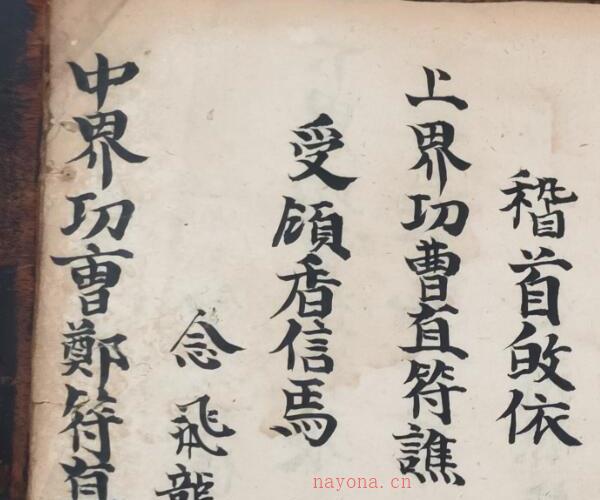 稽首皈依
上界功曹直符譙
受領香信焉
念飛龍
中界功曹鄭符直
nayona.cn